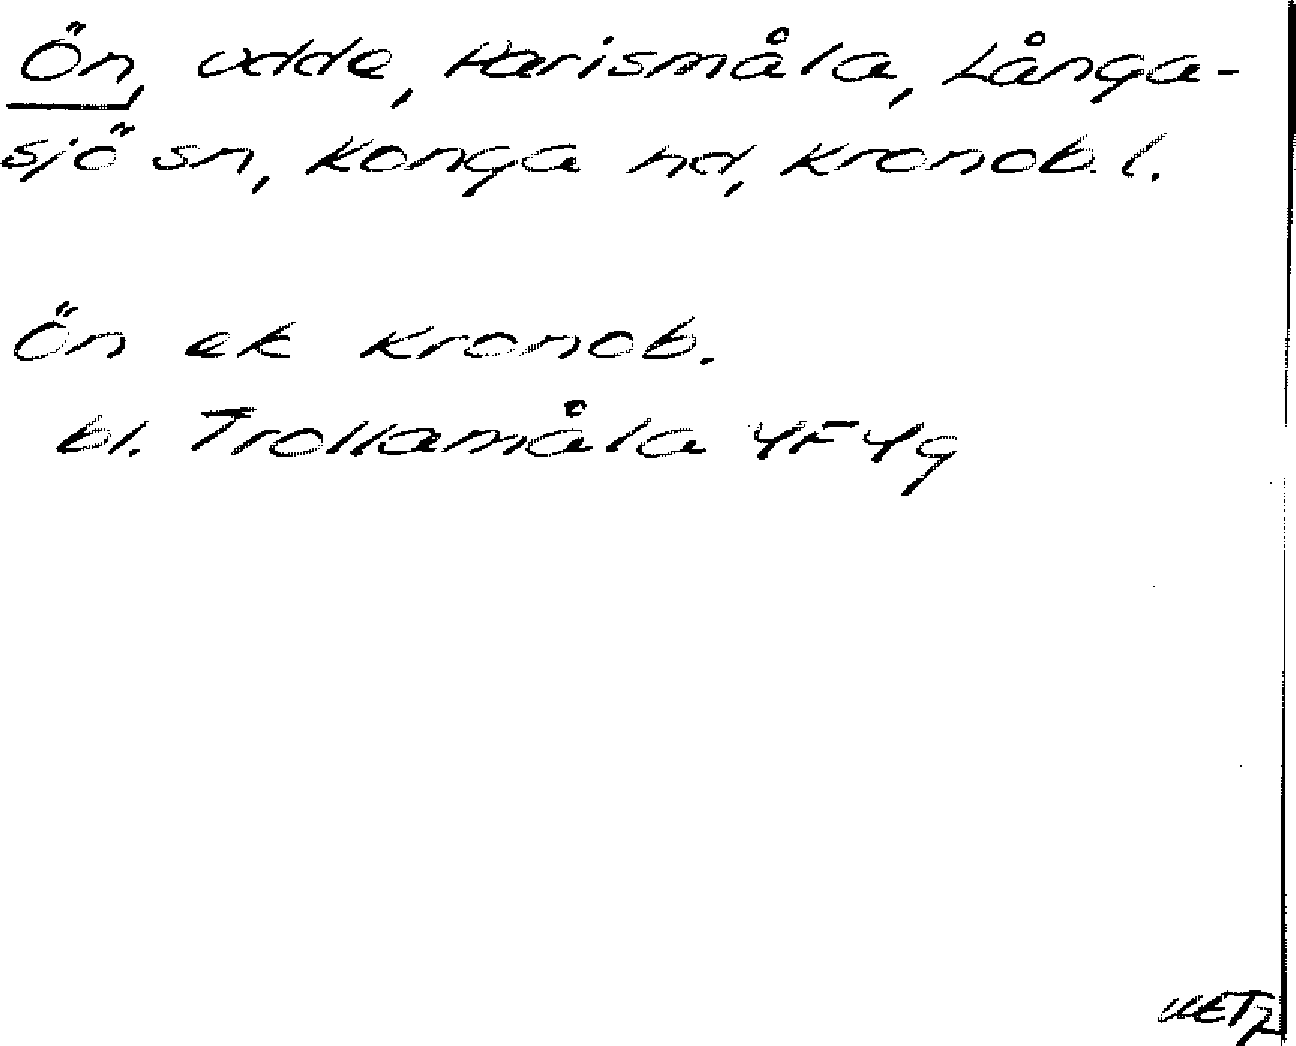 Ön, udde, Harismåla, Långa-
sjö sn, Konga hd, Kronob. l.
Ön ek Kronob.
bl. Trollamåla 4F4g